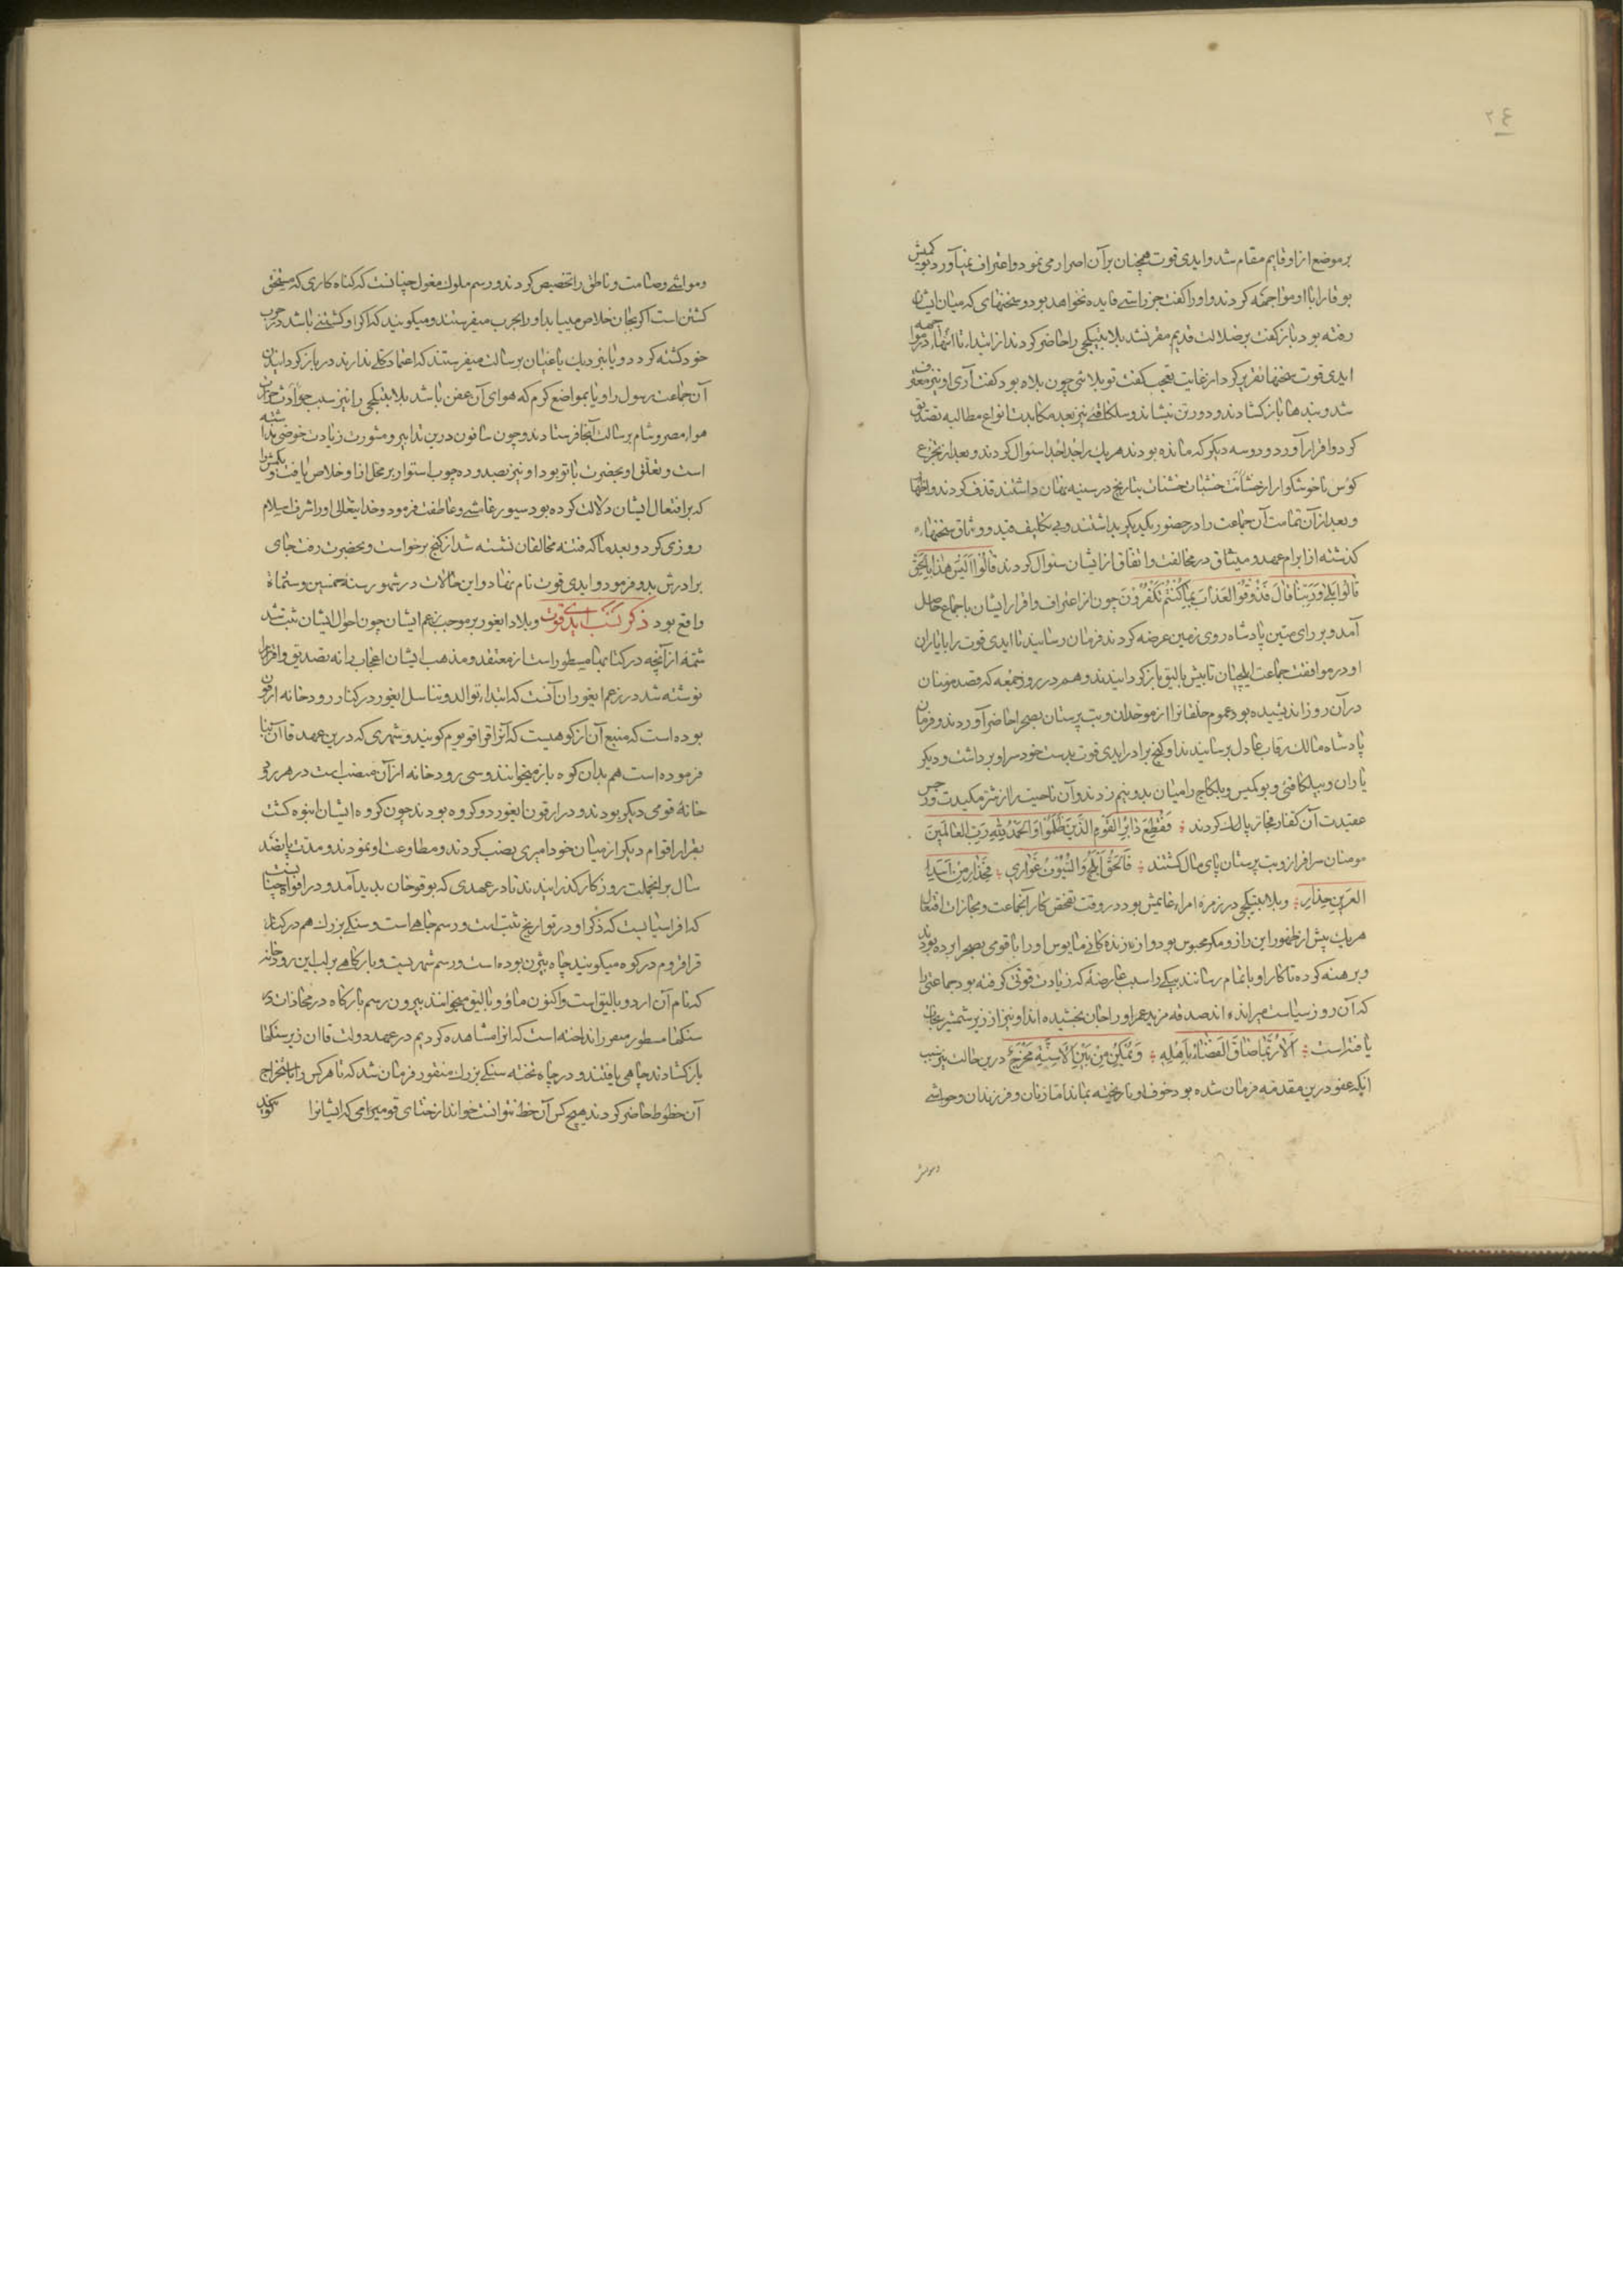 ۲۴
بر موضع از او قایم مقام شد و ایدی قوت همچنان بر آن اصرار می نمود و اعتراف نمی آورد تو کمیش
بوقا را با او مواجهه کردند و او را کفت جز راستی فایده نخواهد بود و سخنهای که میان ایشان
رفته بود باز کفت بر ضلالت قدیم مقر نشد بلا بیتیکچی را حاضر کردند از ابتداء تا انتهاء در مواجهه
ایدی قوت سخنها تقریر کرد از غایت تعجب کفت تو بلائی چون بلاه بود کفت آری او نیز معترف
شد و بندها باز کشادند و دورتر نبشاند و سلکافنی نیز بعد مکابدت انواع مطالبه تصدیق
کرد و اقرار آورد و دو سه دیکر که مانده بودند هر یک را جدا جدا سئوال کردند و بعد از تجرع
کؤس ناخوشکوار از خشآت خشبات خشنات بتاریخ در سینه نهان داشتند قذف کردند و اظهار
و بعد از آن تمامت آن جماعت را در حضور یکدیکر بداشتند و بی تکلیف قید و وثاق سخنهاء
کذشته از ابرام عهد و میثاق در مخالفت و اتفاق از ایشان سئوال کردند قَالُوا اَلَیْسَ هٰذَا بِالْحَقِّ
قَالُوا بَلٰی وَرَبِّنَا قَالَ فَذُوقُوا الْعَذَابَ بِمَا کُنْتُمْ تَکْفُرُونَ چون از اعتراف و اقرار ایشان باجماع حاصل
آمد و بر رای متین پادشاه روی زمین عرضه کردند فرمان رسانید تا ایدی قوت را با یاران
او در موافقت جماعت ایلچیان تا بیش بالیق باز کردانیدند و هم در روز جمعه که قصد مومنان
در آن روز اندیشیده بود عموم خلقانرا از موحدان و بت پرستان بصحرا حاضر آوردند و فرمان
پادشاه مالک رقاب عادل برسانیدند او کنج برادر ایدی قوت بدست خود سر او بر داشت و دیکر
یاران و بیلکافنی و بو کمیس و یلکاج را میان بدو نیم زدند و آن ناحیت را از شر مکیدت و رجس
عقیدت آن کفار مجاز پاک کردند فَقُطِعَ دَابِرُ الْقَوْمِ الَّذِینَ ظَلَمُوا وَالْحَمْدُ لِلّٰهِ رَبِّ الْعَالَمِینَ
مومنان سرافراز و بت پرستان پای مال کشتند فَالْحَقُّ اَبْلَجُ وَالسُّیُوفُ عَوَارِی فَحَذَارِ مِنْ اَسَدِ
العَرِینِ حِذَارِ و بلا بیتیکچی در زمره امراء غایمش بود در وقت تفحص کار آنجماعت و مجازات افتعال
هر یک پیش از ظهور این راز و مکر محبوس بود و از زنده کانی مایوس او را با قومی بصحرا برده بودند
و برهنه کرده تا کار او بتمام رسانند بیکی را سبب عارضهٔ که زیادت قوتی کرفته بود جماعتی را
که آن روز سیاست میراندهاند صدقه مزید عمر او را جان بخشیدهاند او نیز از زیر شمشیر نجات
یافته است اَلَا رُبَّمَا ضَاقَ الْفَضَاءُ بِاَهْلِهِ وَیُمْکِنُ مِنْ بَیْنِ الْاَسِنَّةِ مَخْرَجُ درین حالت نیز سبب
انکه عفو درین مقدمه فرمان شده بود خوف او باریخته نماند اما زنان و فرزندان و حواشی
و مواشی
و مواشی و صامت و ناطق را تخصیص کردند و رسم ملوک مغول چنانست که کناه کاری که مستحق
کشتن است اکر بجان خلاص مییابد او را بحرب میفرستند و میکویند که اکر او کشتنی باشد در حرب
خود کشته کردد و یا بنزدیک یاغیان برسالت میفرستند که اعتماد کلی ندارند در باز کردانیدن
آن جماعت رسول را و یا بمواضع کرم که هوای آن عفن باشد بلا بیتیکچی را نیز سبب حوادث حرارت
هواء مصر و شام برسالت آنجا فرستادند و چون سافون درین تدابیر و مشورت زیادت خوضی نداشته
است و تعلق او بحضرت باتو بود او نیز بصد و ده چوب استوار بر محل ازا و خلاص یافت و تکمش را
که بر افتعال ایشان دلالت کرده بود سیورغامشی و عاطفت فرمود و خدایتعالی او را شرف اسلام
روزی کرد و بعد ما که فتنه مخالفان نشسته شد از کنج برخواست و بحضرت رفت جای
برادرش بدو فرمود و ایدی قوت نام نهاد و این حالات در شهور سنهٔ خمسین و ستمائة
واقع بود ذکر نسب ایدی قوت و بلاد ایغور بر موجب زعم ایشان چون احوال ایشان ثبت شد
شمهٔ از آنچه در کتابهاء مسطور است از معتقد و مذهب ایشان اعجاب را نه تصدیق و اقرار را
نوشته شد در زعم ایغوران آنست که ابتداء توالد و تناسل ایغور در کنار رودخانه ارقون
بوده است که منبع آن از کوهیست که آنرا قراقوروم کویند و شهری که درین عهد قاآن بنا
فرموده است هم بدان کوه باز میخوانند و سی رودخانه از آن منصب است در هر رود
خانهٔ قومی دیکر بودند و در ارقون ایغور دو کروه بودند چون کروه ایشان انبوه کشت
بقرار اقوام دیکر از میان خود امیری نصب کردند و مطاوعت او نمودند و مدت پانصد
سال بر اینجملت روزکار کذرانیدند تا در عهدی که بوقو خان پدید آمد و در افواه چنانست
که افراسیابست که ذکر او در تواریخ ثبت است و رسم چاهی است و سنکی بزرک هم در کنار
قراقروم در کوه میکویند چاه بیژن بوده است و رسم شهریست و بارکاهی بر لب این رودخانه
که نام آن اردو بالیق است و اکنون ماؤو بالیق میخوانند بیرون رسم بارکاه در محاذات در
سنکها مسطور منقور انداخته است که انرا مشاهده کردیم در عهد دولت قاان زیر سنکها
باز کشادند چاهی یافتند و در چاه تخته سنکی بزرک منقور فرمان شد که تا هر کس را باستخراج
آن خطوط حاضر کردند هیچ کس آن خط نتوانست خواند از ختای قومی را می که ایشانرا کویند